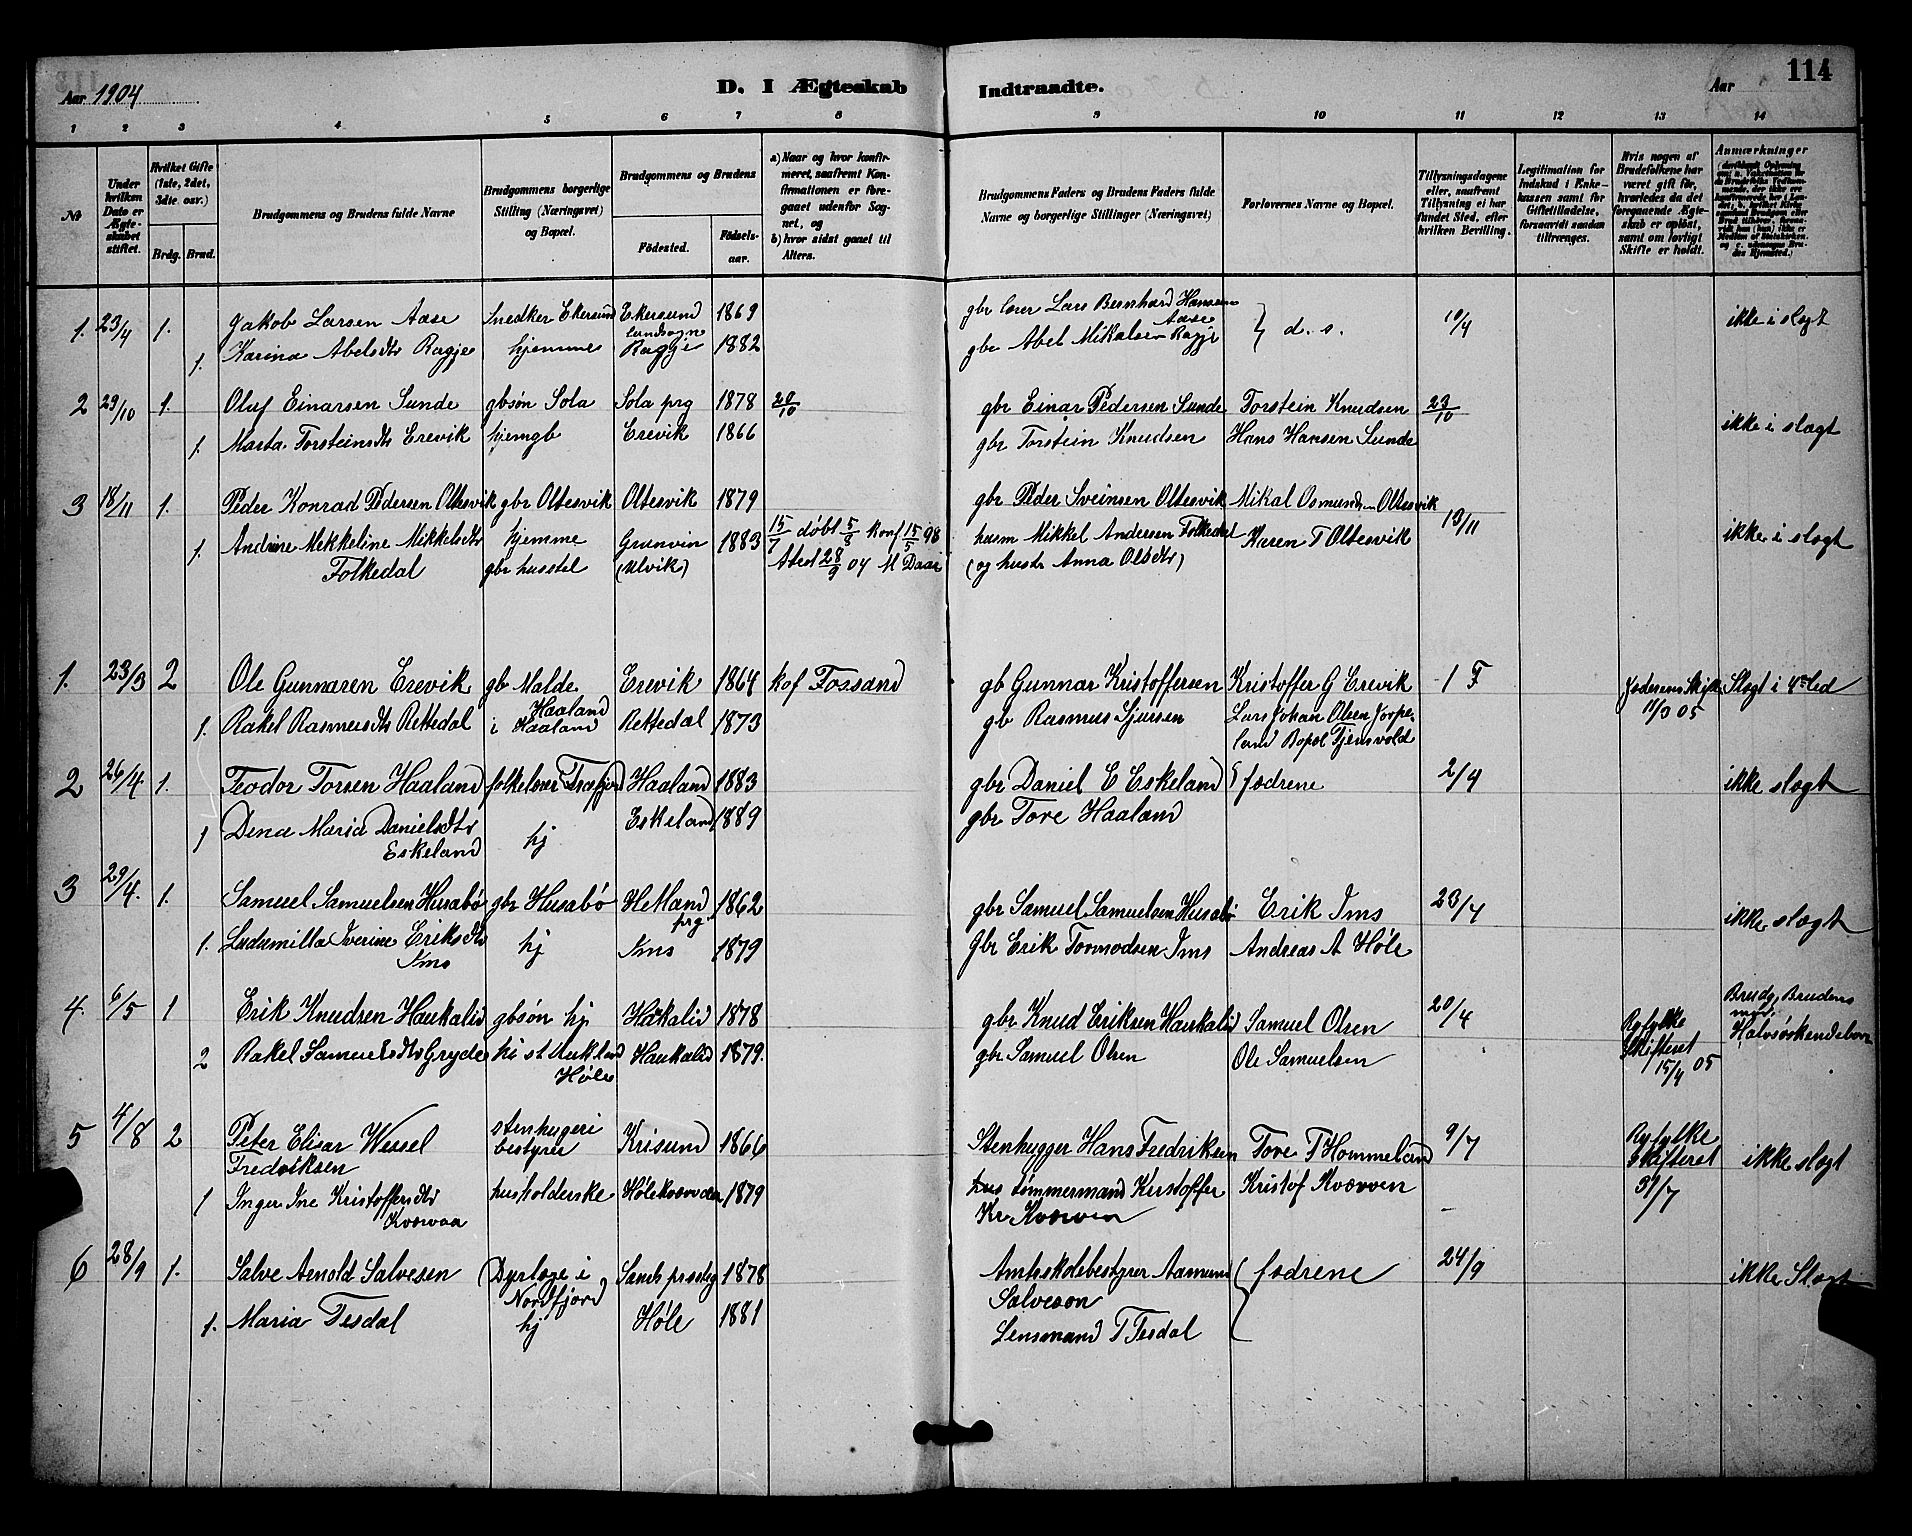 Aar 1904 D. I Ægteskab Indtraadte. Aar 114
1 2 3 4 5 6 7 8 9 10 11 12 13 14
No
Under hvilken Dato er Ægteskabet stiftet.
Hvilket Gifte (1ste, 2det, 3die osv.)
Brdg. Brud.
Brudgommens og Brudens fulde Navne
Brudgommens borgerlige Stilling (Næringsvei) og Bopæl.
Brudgommens og Brudens
Födested. Födselsaar.
a) Naar og hvor konfirmeret, saafremt Konfirmationen er foregaaet udenfor Sognet, og
b) hvor sidst gaaet til Alters.
Brudgommens Faders og Brudens Faders fulde Navne og borgerlige Stillinger (Næringsvei)
Forlovernes Navne og Bopæl.
Tillysningsdagene eller, saafremt Tillysning ei har fundet Sted, efter hvilken Bevilling.
Legitimation for Indskud i Enkekassen samt for Giftetilladelse, forsaavidt saadan tiltrænges.
Hvis nogen af Brudefolkene har været gift för, hvorledes da det foregaaende Ægteskab er oplöst, samt om lovligt Skifte er holdt.
Anmærkninger
1. 23/4 1. Jakob Larsen Aase Snedker Ekersund Ekersund landsogn 1869 gbr lærer Lars Bernhard Hansen Aase } d. s. 10/4 ikke i slægt
1. Karina Abelsdtr Ragje hjemme Raggje 1882 gbr Abel Mikalsen Ragje
2 29/10 1. Oluf Einarsen Sunde gbsøn Sola Sola prg 1878 20/10 gbr Einar Pedersen Sunde Torstein Knudsen 23/10 ikke i slægt
1. Marta Torsteinsdtr Erevik hjemgb Erevik 1866 gbr Torstein Knudsen Hans Hansen Sunde
3 18/11 1. Peder Konrad Pedersen Oltesvik gbr Oltesvik Oltesvik 1879 gbr Peder Sveinsen Oltesvik Mikal Osmundsen Oltesvik 13/11 ikke i slægt
1. Andrine Mekkeline Mikkelsdtr hjemme Granvin 1883 15/7 døbt 5/8 konf 15/5 98 husm Mikkel Andersen Folkedal Karen T Oltesvik
Folkedal gbr husstel (Ulvik) Atest 28/9 04 M Daae (og hustr Anna Olsdtr)
1. 23/3 2 Ole Gunnaren Erevik gb Malde Erevik 1864 kof Fossand gb Gunnar Kristoffersen Kristoffer G Erevik 1 F Jæderens Skift 11/3 05 Slægt i 4de led
1. Rakel Rasmusdtr Rettedal i Haaland Haaland Rettedal 1873 gb Rasmus Sjursen Lars Johan Olsen Jørpeland Bopæl Tjensvold
2 26/4 1. Teodor Torsen Haaland folkelærer Frafjord Haaland 1883 gbr Daniel E Eskeland } fædrene 2/4 ikke slægt
1 Dena Maria Danielsdtr Eskeland hj Eskeland 1889 gbr Tore Haaland
3 29/4. 1. Samuel Samuelsen Husabø gbr Husabø Hetland prg 1862 gbr Samuel Samuelsen Husabø Erik Ims 23/4 ikke slægt
1. Ludumilla Iverine Eriksdtr Ims hj Ims 1879 Gbr Erik Tormodsen Ims Andreas A Høle
4. 6/5 1 Erik Knudsen Haukalid gbsøn hj Haukalid 1878 gbr Knud Eriksen Haukalid Samuel Olsen 20/4 Ryfylke Skifteret 15/4 05 Brudg, Brudens mor, Halvsøskendebarn
2 Rakel Samuelsdtr Gryde hj st Aukland Høle Haukalid 1879. gbr Samuel Olsen Ole Samuelsen
5 4/8 2 Peter Elisar Wessel Fredriksen stenhugeri bestyrer Krisund 1866 Stenhugger Hans Fredriksen Tore T Hommeland 9/7 Ryfylke Skifteret 31/7 ikke slægt
1 Inger Ine Kristoffersdtr Kværvaa husholderske Høle Kværven 1879 tømmermand Kristoffer Kr Kværven Kristof Kværven
6 28/9 1. Salve Arnold Salvesen Dyrlæge i Nordfjord Sands præstg 1878 Amtsskolebestyrer Aamund Salveson } fædrene 24/9 ikke Slægt
1. Maria Tesdal hj Høle 1881 Lensmand T Tesdal